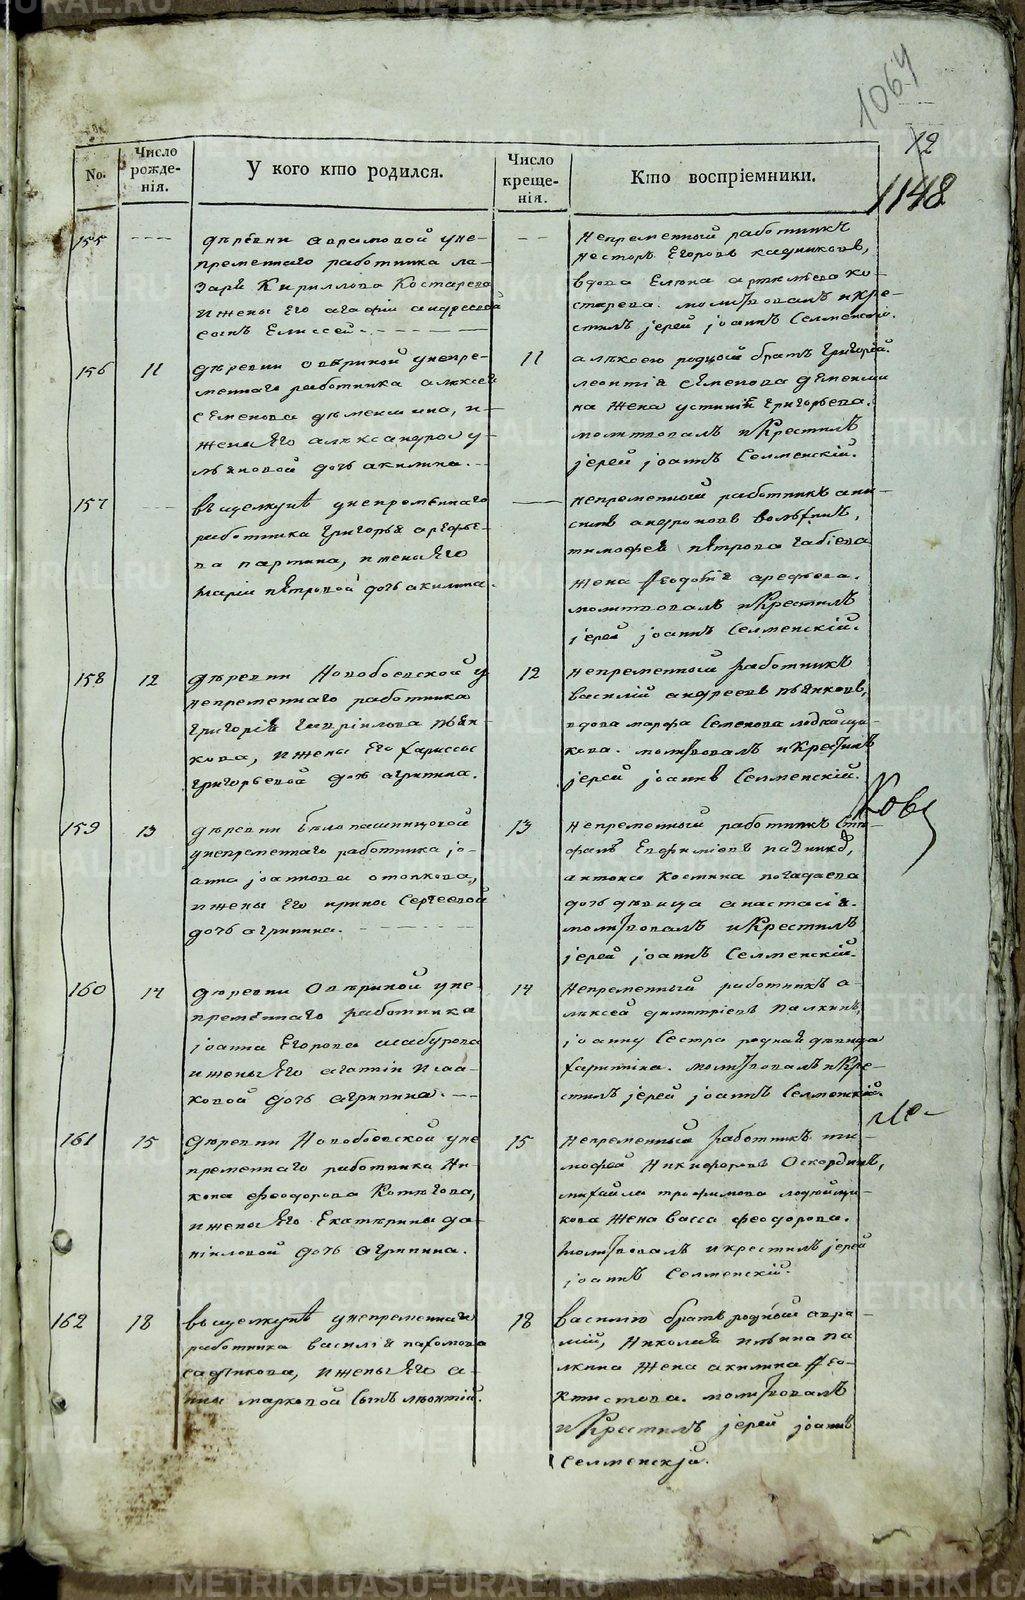 1064
12
1148
No.
Число рожденія.
У кого кто родился.
Число крещенія.
Кто воспріемники.
155
деревни Аврамовой уне-
пременнаго работника ла-
заря Кириллова Костарева
и жены Его агафіи андреевой
сынъ Елиссей.
Непременный работникъ
несторъ Егоровъ кадниковъ,
вдова Елена артемьева ко-
старева. молитвовалъ и кре-
стилъ іерей іоаннъ Селменскій.
156
11
деревни Овериной унепре-
меннаго работника алексея
Семенова деменшина, и
жены Его александры у-
льяновой дочь акилина.
11
алексею родной братъ григорій.
леонтія Семенова деменши
на жена устинія григорьева.
молитвовалъ и Крестилъ
іерей іоаннъ Селменскій.
157
в щелкуне унепременнаго
работника григорья арефье-
ва паршина, и жены Его
маріи петровой дочь акилина.
непременный работникъ ани-
симъ андроновъ
тимофея петрова
жена Феодотія арефьева.
молитвовалъ и Крестилъ
іерей іоаннъ Селменскій.
158
12
деревни Новобоевской у
непременнаго работника
григорія гавріилова пьян-
кова, и жены Его хариссы
григорьевой дочь агрипина.
12
непременный работникъ
василій андреевъ пьянковъ,
вдова марфа Семенова
кова. молитвовалъ и Крестилъ
іерей іоаннъ Селменскій.
159
13
деревни белопашинцовой
унепременнаго работника іо-
анна іоаннова отопкова,
и жены Его ирины Сергеевой
дочь агрипина.
13
непременный работникъ Сте-
фанъ Евфиміевъ
антона Костина погадаева
дочь девица анастасія.
молитвовалъ и Крестилъ
іерей іоаннъ Селменскій.
160
14
деревни Овериной уне-
пременнаго работника
іоанна Егорова шабурова
и жены Его агапіи Исаа-
ковой дочь агрипина.
14
Непременный работникъ а-
лексей димитріевъ палкинъ,
іоанну Сестра родная девица
харитина. молитвовалъ и Кре-
стилъ іерей іоаннъ Селменскій.
161
15
деревни Новобоевской уне
пременнаго работника Ни-
кона феодорова Котюгова,
и жены Его Екатерины да-
ніиловой дочь агрипина.
15
непременный работникъ ти-
мофей Никифоровъ Оскординъ,
михайла трофимова
кова жена васса феодорова.
молитвовалъ и крестилъ іерей
іоаннъ Селменскій.
162
18
в щелкуне унепременнаго
работника василія пахомова
садчикова, и жены Его а-
нны марковой Сынъ леонтій.
18
василію братъ родной авра-
мій, Николая ильина па
лкина жена акилина Фео-
ктистова. молитвовалъ
и Крестилъ іерей іоаннъ
Селменскій.